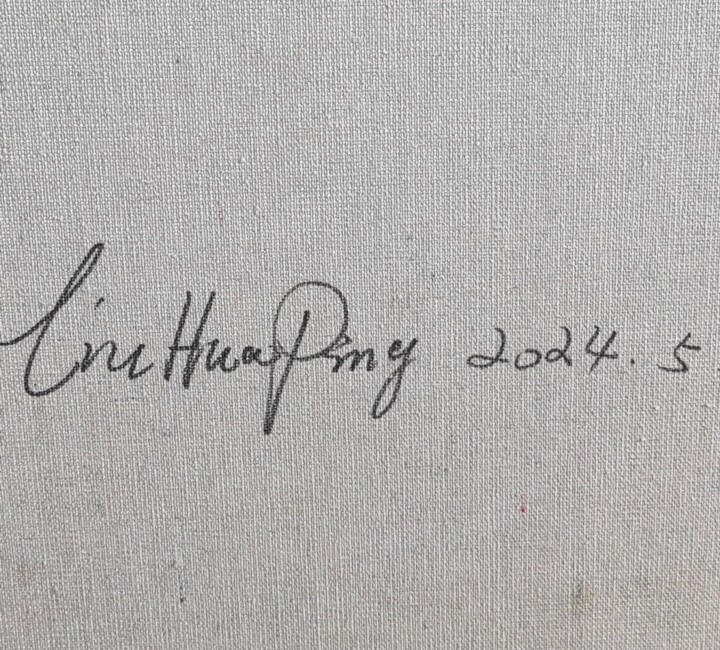 Liu HuaPing 2024.5